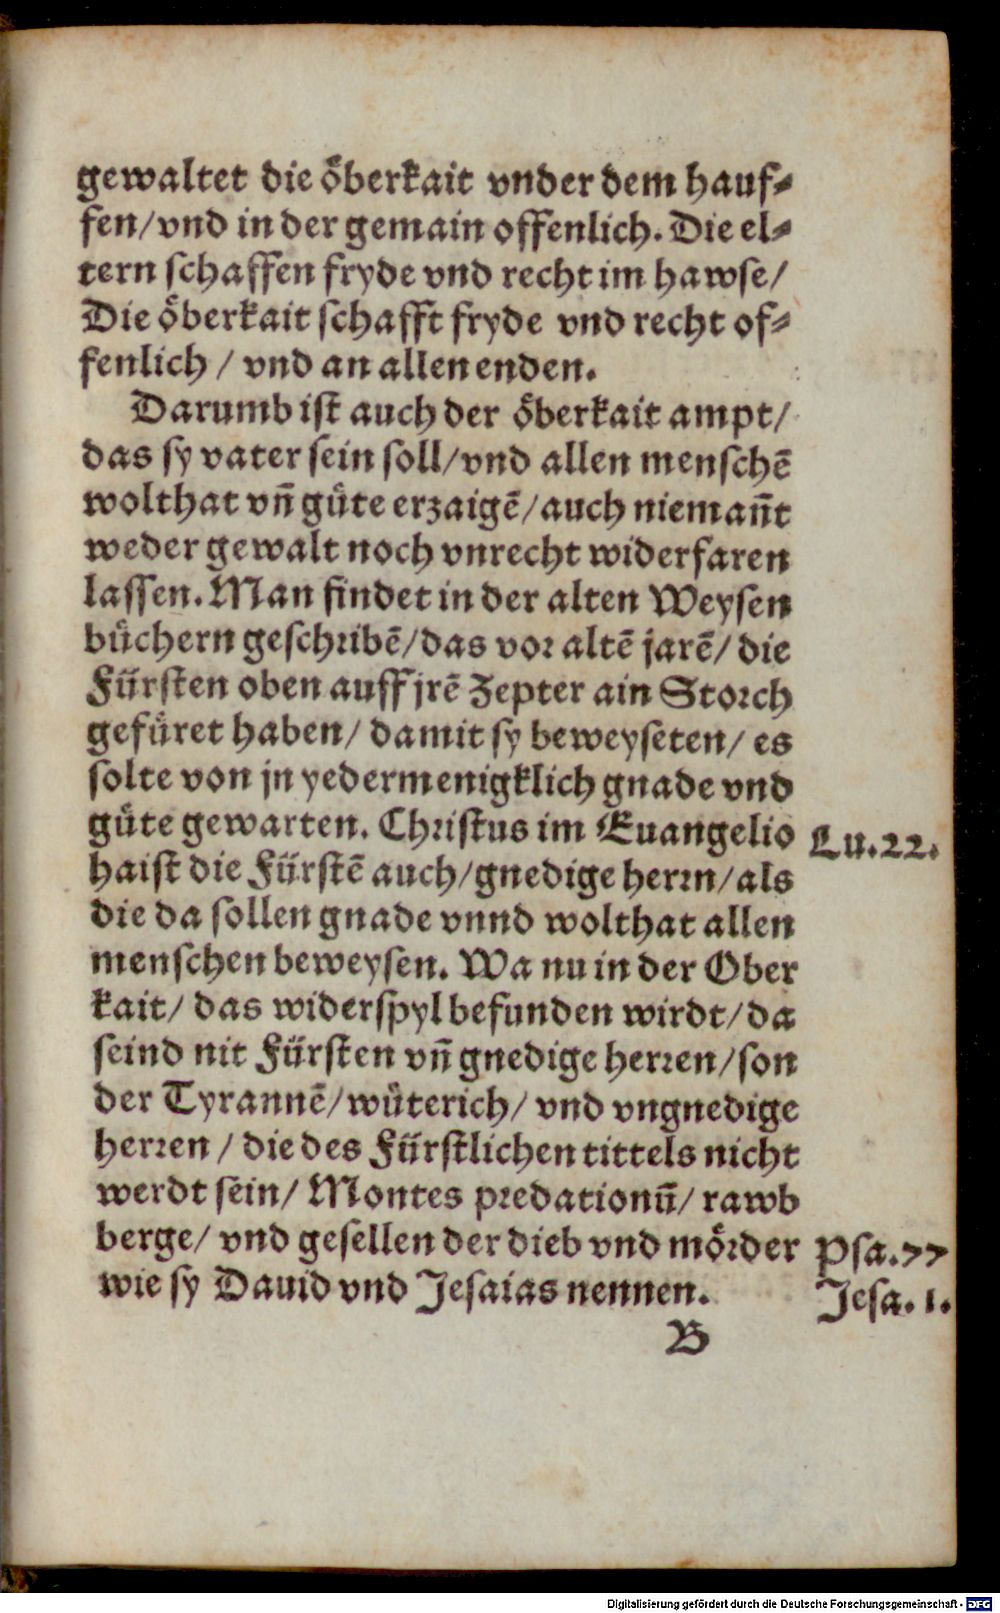 gewaltet die o̊berkait vnder dem hauf⸗
fen/vnd in der gemain offenlich. Die el⸗
tern schaffen fryde vnd recht im hawse/
Die o̊berkait schafft fryde vnd recht of⸗
fenlich / vnd an allen enden.
Darumb ist auch der o̊berkait ampt/
das sy vater sein soll/vnd allen menschē
wolthat vn̄ güte erzaigē/auch nieman̄t
weder gewalt noch vnrecht widerfaren
lassen. Man findet in der alten Weysen
büchern geschribē/das vor altē jarē/ die
Fürsten oben auff jrē Zepter ain Storch
gefüret haben/ damit sy beweyseten/ es
solte von jn yedermenigklich gnade vnd
güte gewarten. Christus im Euangelio
Lu.22.
haist die Fürstē auch/gnedige herrn/als
die da sollen gnade vnnd wolthat allen
menschen beweysen. Wa nu in der Ober
kait/ das widerspyl befunden wirdt/ da
seind nit Fürsten vn̄ gnedige herren/son
der Tyrannē/wüterich/ vnd vngnedige
herren / die des Fürstlichen tittels nicht
werdt sein/ Montes predationū/ rawb
berge/ vnd gesellen der dieb vnd mörder
Psa.77
wie sy Dauid vnd Jesaias nennen.
Jesa. 1.
B
Digitalisierung gefördert durch die Deutsche Forschungsgemeinschaft - DFG